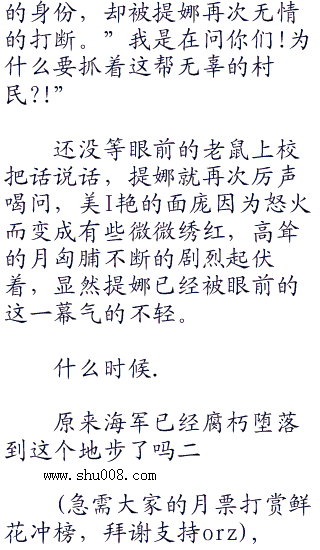 的身份，却被提娜再次无情
的打断。”我是在问你们!为
什么要抓着这帮无辜的村
民?!”
还没等眼前的老鼠上校
把话说话，提娜就再次厉声
喝问，美I艳的面庞因为怒火
而变成有些微微绣红，高耸
的月匈脯不断的剧烈起伏
着，显然提娜已经被眼前的
这一幕气的不轻。
什么时候.
原来海军已经腐朽堕落
到这个地步了吗二
www.shu008.com
(急需大家的月票打赏鲜
花冲榜，拜谢支持orz)，